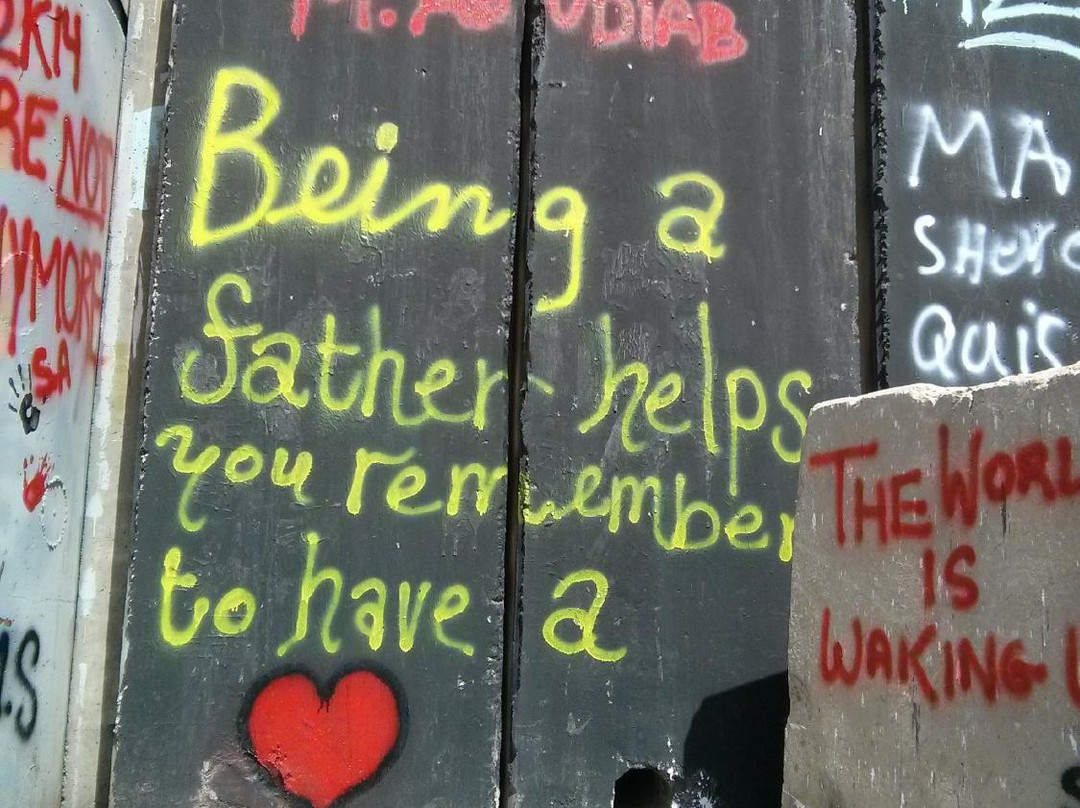 2K14
RE NOT
YMORE
SA
M. ABUDIAB
Being a
father helps
you remember
to have a
MA
SHERE
Quis
THE WORL
IS
WAKING U